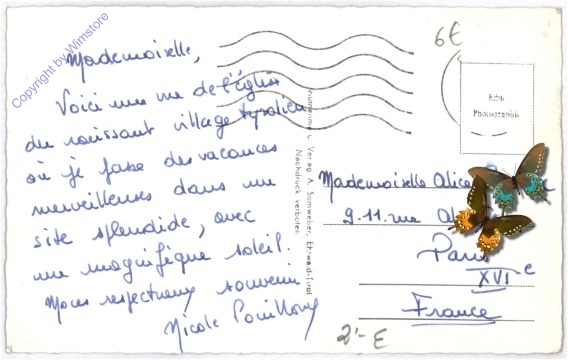 Copyright by Wimstore
6€
Mademoiselle,
Voici une vue de l'église
du ravissant village tyrolien
où je passe des vacances
merveilleuses dans un
site splendide, avec
un magnifique soleil.
respectueux souvenir
Nicole Pouillon
u. Verlag A. Somweber, Ehrwald-Tirol
Nachdruck verboten
Echte
Photographie
Mademoiselle Alice
9.11. rue
Paris
XVIe
France
2'- E